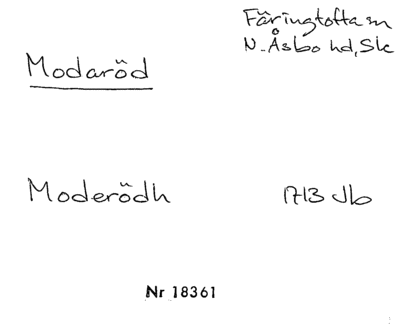 Färingtofta sn
N. Åsbo hd, Sk
Modaröd
Moderödh 1713 Jb
Nr 18361